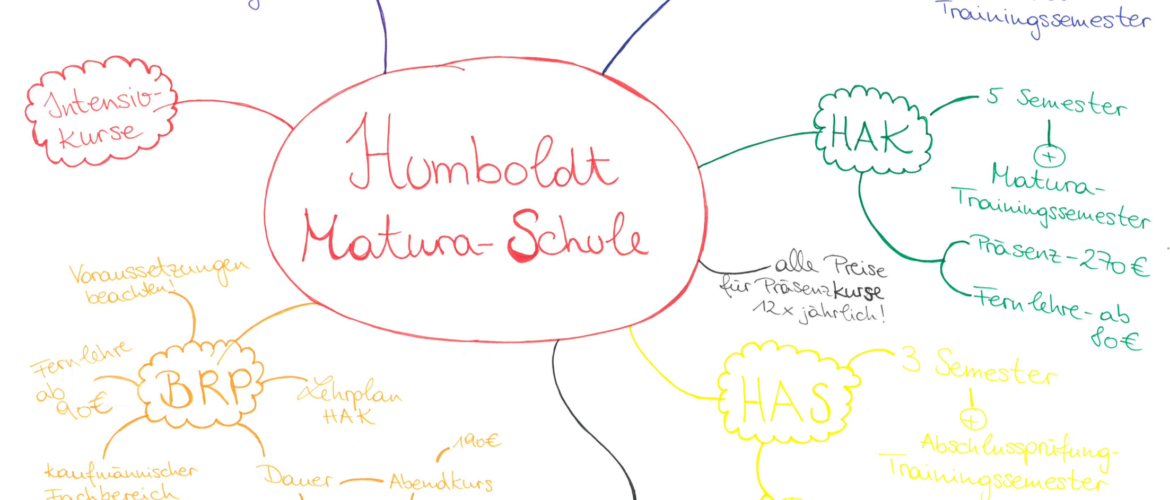 Trainingssemester
Intensiv-
kurse
Humboldt
Matura-Schule
HAK
5 Semester
+
Matura-
Trainingssemester
Präsenz - 270€
Fernlehre - ab
80€
alle Preise
für Präsenzkurse
12x jährlich!
Voraussetzungen
beachten!
Fernlehre
ab
90€
BRP
Lehrplan
HAK
kaufmännischer
Fachbereich
Dauer
Abendkurs
190€
HAS
3 Semester
+
Abschlussprüfung-
Trainingssemester